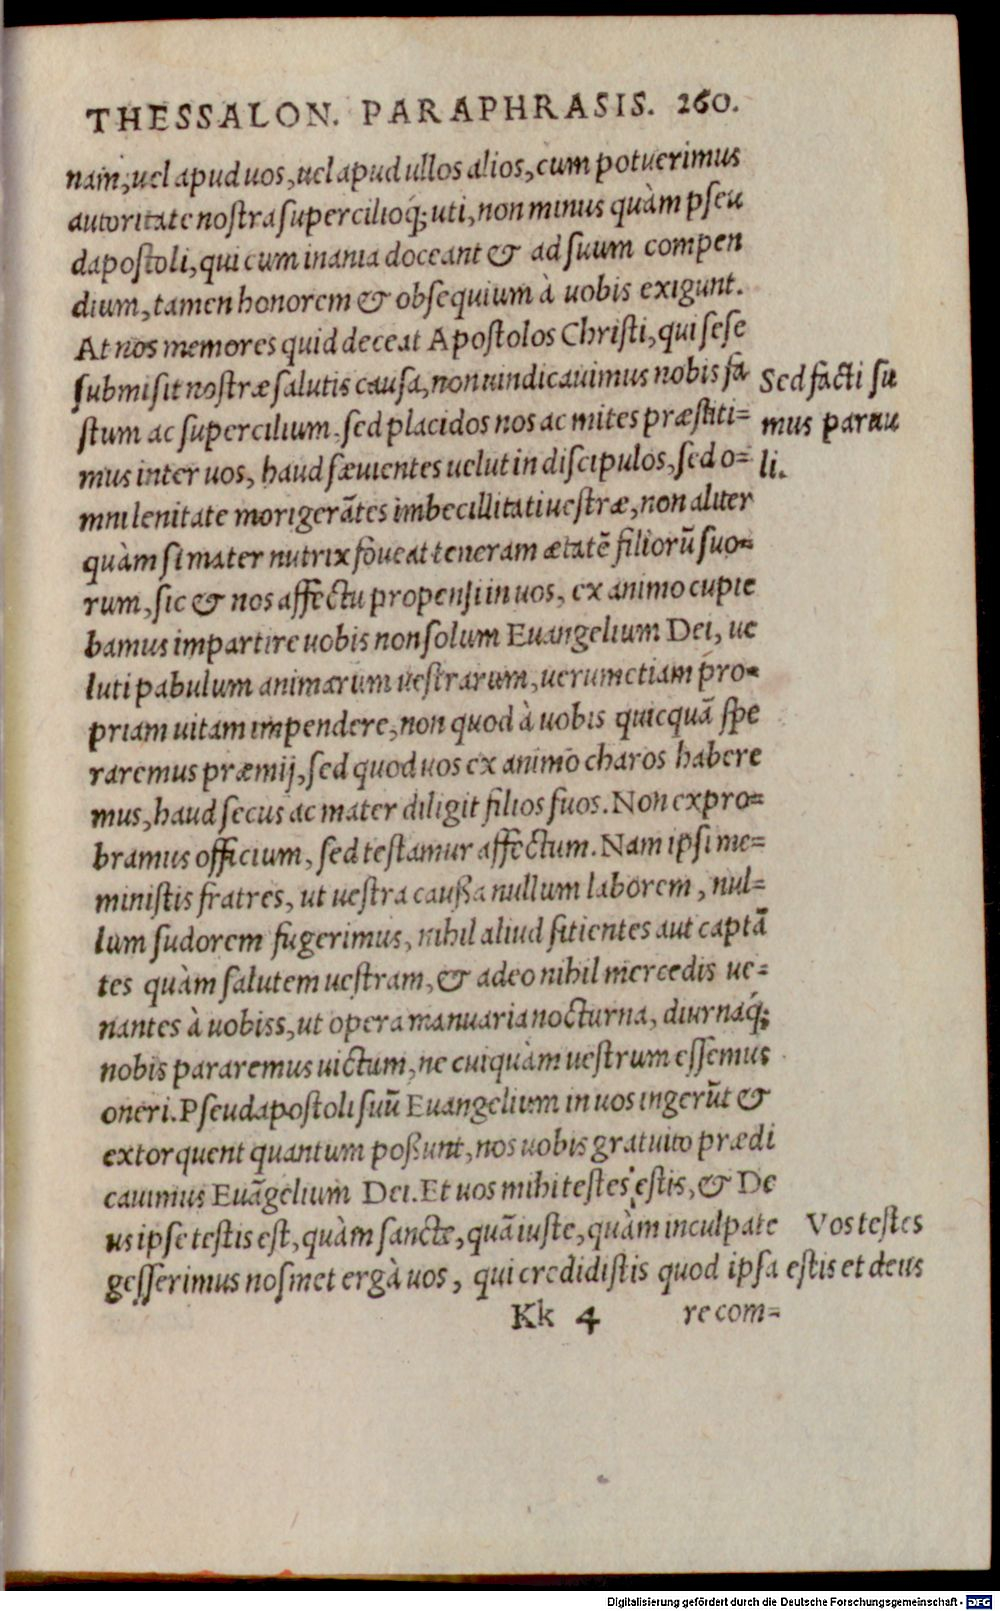 THESSALON. PARAPHRASIS. 260.
nam, uel apud uos, uel apud ullos alios, cum potuerimus
autoritate nostra supercilioq́; uti, non minus quàm pseu
dapostoli, qui cum inania doceant & ad suum compen
dium, tamen honorem & obsequium à uobis exigunt.
At nos memores quid deceat Apostolos Christi, qui sese
submisit nostræ salutis causa, non uindicauimus nobis fa
stum ac supercilium, sed placidos nos ac mites præstiti=
mus inter uos, haud sæuientes uelut in discipulos, sed o=
mni lenitate morigerãtes imbecillitati uestræ, non aliter
quàm si mater nutrix foueat teneram ætatẽ filiorũ suo=
rum, sic & nos affectu propensi in uos, ex animo cupie
bamus impartire uobis non solum Euangelium Dei, ue
luti pabulum animarum uestrarum, uerumetiam pro=
priam uitam impendere, non quod à uobis quicquã spe
raremus præmij, sed quod uos ex animo charos habere
mus, haud secus ac mater diligit filios suos. Non expro=
bramus officium, sed testamur affectum. Nam ipsi me=
ministis fratres, ut uestra caußa nullum laborem, nul=
lum sudorem fugerimus, nihil aliud sitientes aut captã
tes quàm salutem uestram, & adeo nihil mercedis ue=
nantes à uobiss, ut opera manuaria nocturna, diurnaq́;
nobis pararemus uictum, ne cuiquàm uestrum essemus
oneri. Pseudapostoli suũ Euangelium in uos ingerũt &
extorquent quantum poßunt, nos uobis gratuito prædi
cauimus Euãgelium Dei. Et uos mihi testes estis, & De
us ipse testis est, quàm sancte, quã iuste, quàm inculpate
gesserimus nosmet ergà uos, qui credidistis quod ipsa
Kk 4 re com=
Sed facti su
mus paruu
li.
Vos testes
estis et deus
Digitalisierung gefördert durch die Deutsche Forschungsgemeinschaft - DFG